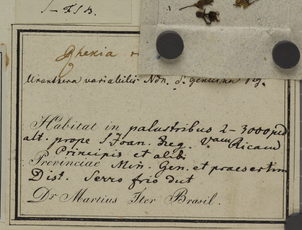 Rhexia
Uranthera variabilis Nob. γ. genuina
Habitat in palustribus 2-3000 ped
alt. prope S. Joan. Reg. Vam Ricam
Principis et alib
Provinciae Min. Gen. et praesertim
Dist. Serro frio dict
Dr Martius Iter Brasil.